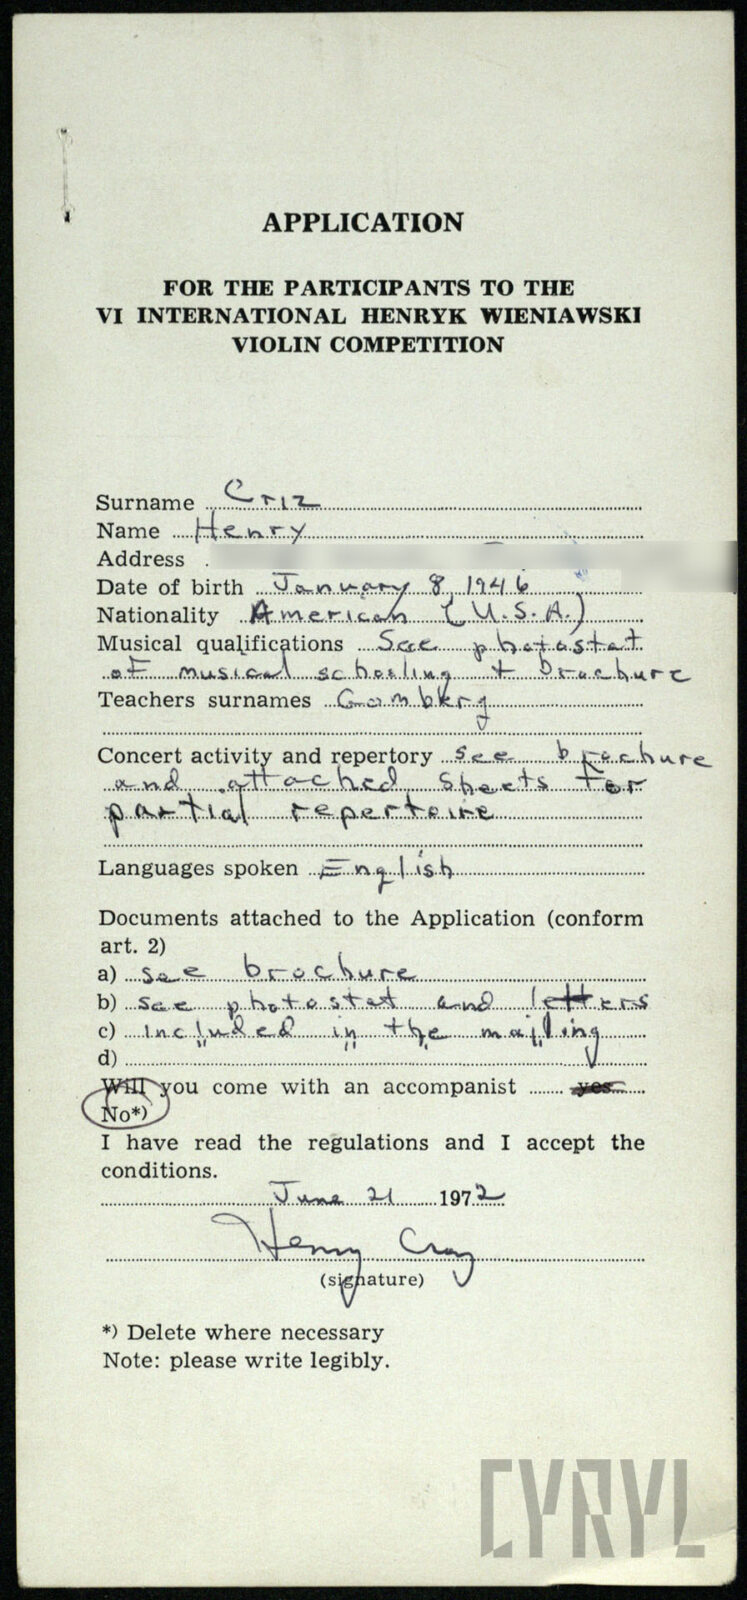 APPLICATION
FOR THE PARTICIPANTS TO THE
VI INTERNATIONAL HENRYK WIENIAWSKI
VIOLIN COMPETITION
Surname Criz
Name Henry
Address
Date of birth January 8, 1946
Nationality American (U.S.A.)
Musical qualifications See photostat
of musical schooling + brochure
Teachers surnames Gomberg
Concert activity and repertory see brochure
and attached sheets for
partial repertoire
Languages spoken English
Documents attached to the Application (conform
art. 2)
a) see brochure
b) see photostat and letters
c) included in the mailing
d)
Will you come with an accompanist yes
No*)
I have read the regulations and I accept the
conditions.
June 21 1972
Henry
(signature)
*) Delete where necessary
Note: please write legibly.
CYRYL